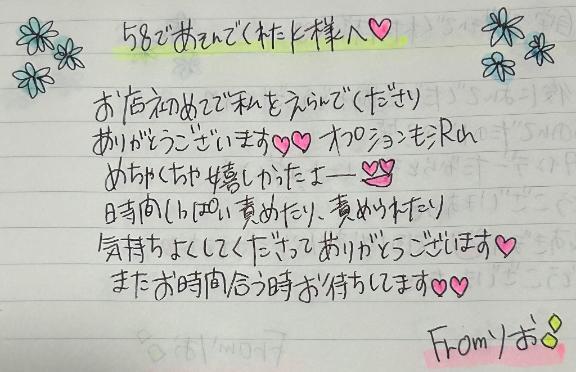 58であそんでくれたK様へ♡
お店初めてで私をえらんでくださり
ありがとうございます♡♡ オプションも沢山
めちゃくちゃ嬉しかったよー
時間いっぱい責めたり、責められたり
気持ちよくしてくださってありがとうございます♡
またお時間合う時お待ちしてます♡♡
Fromりお